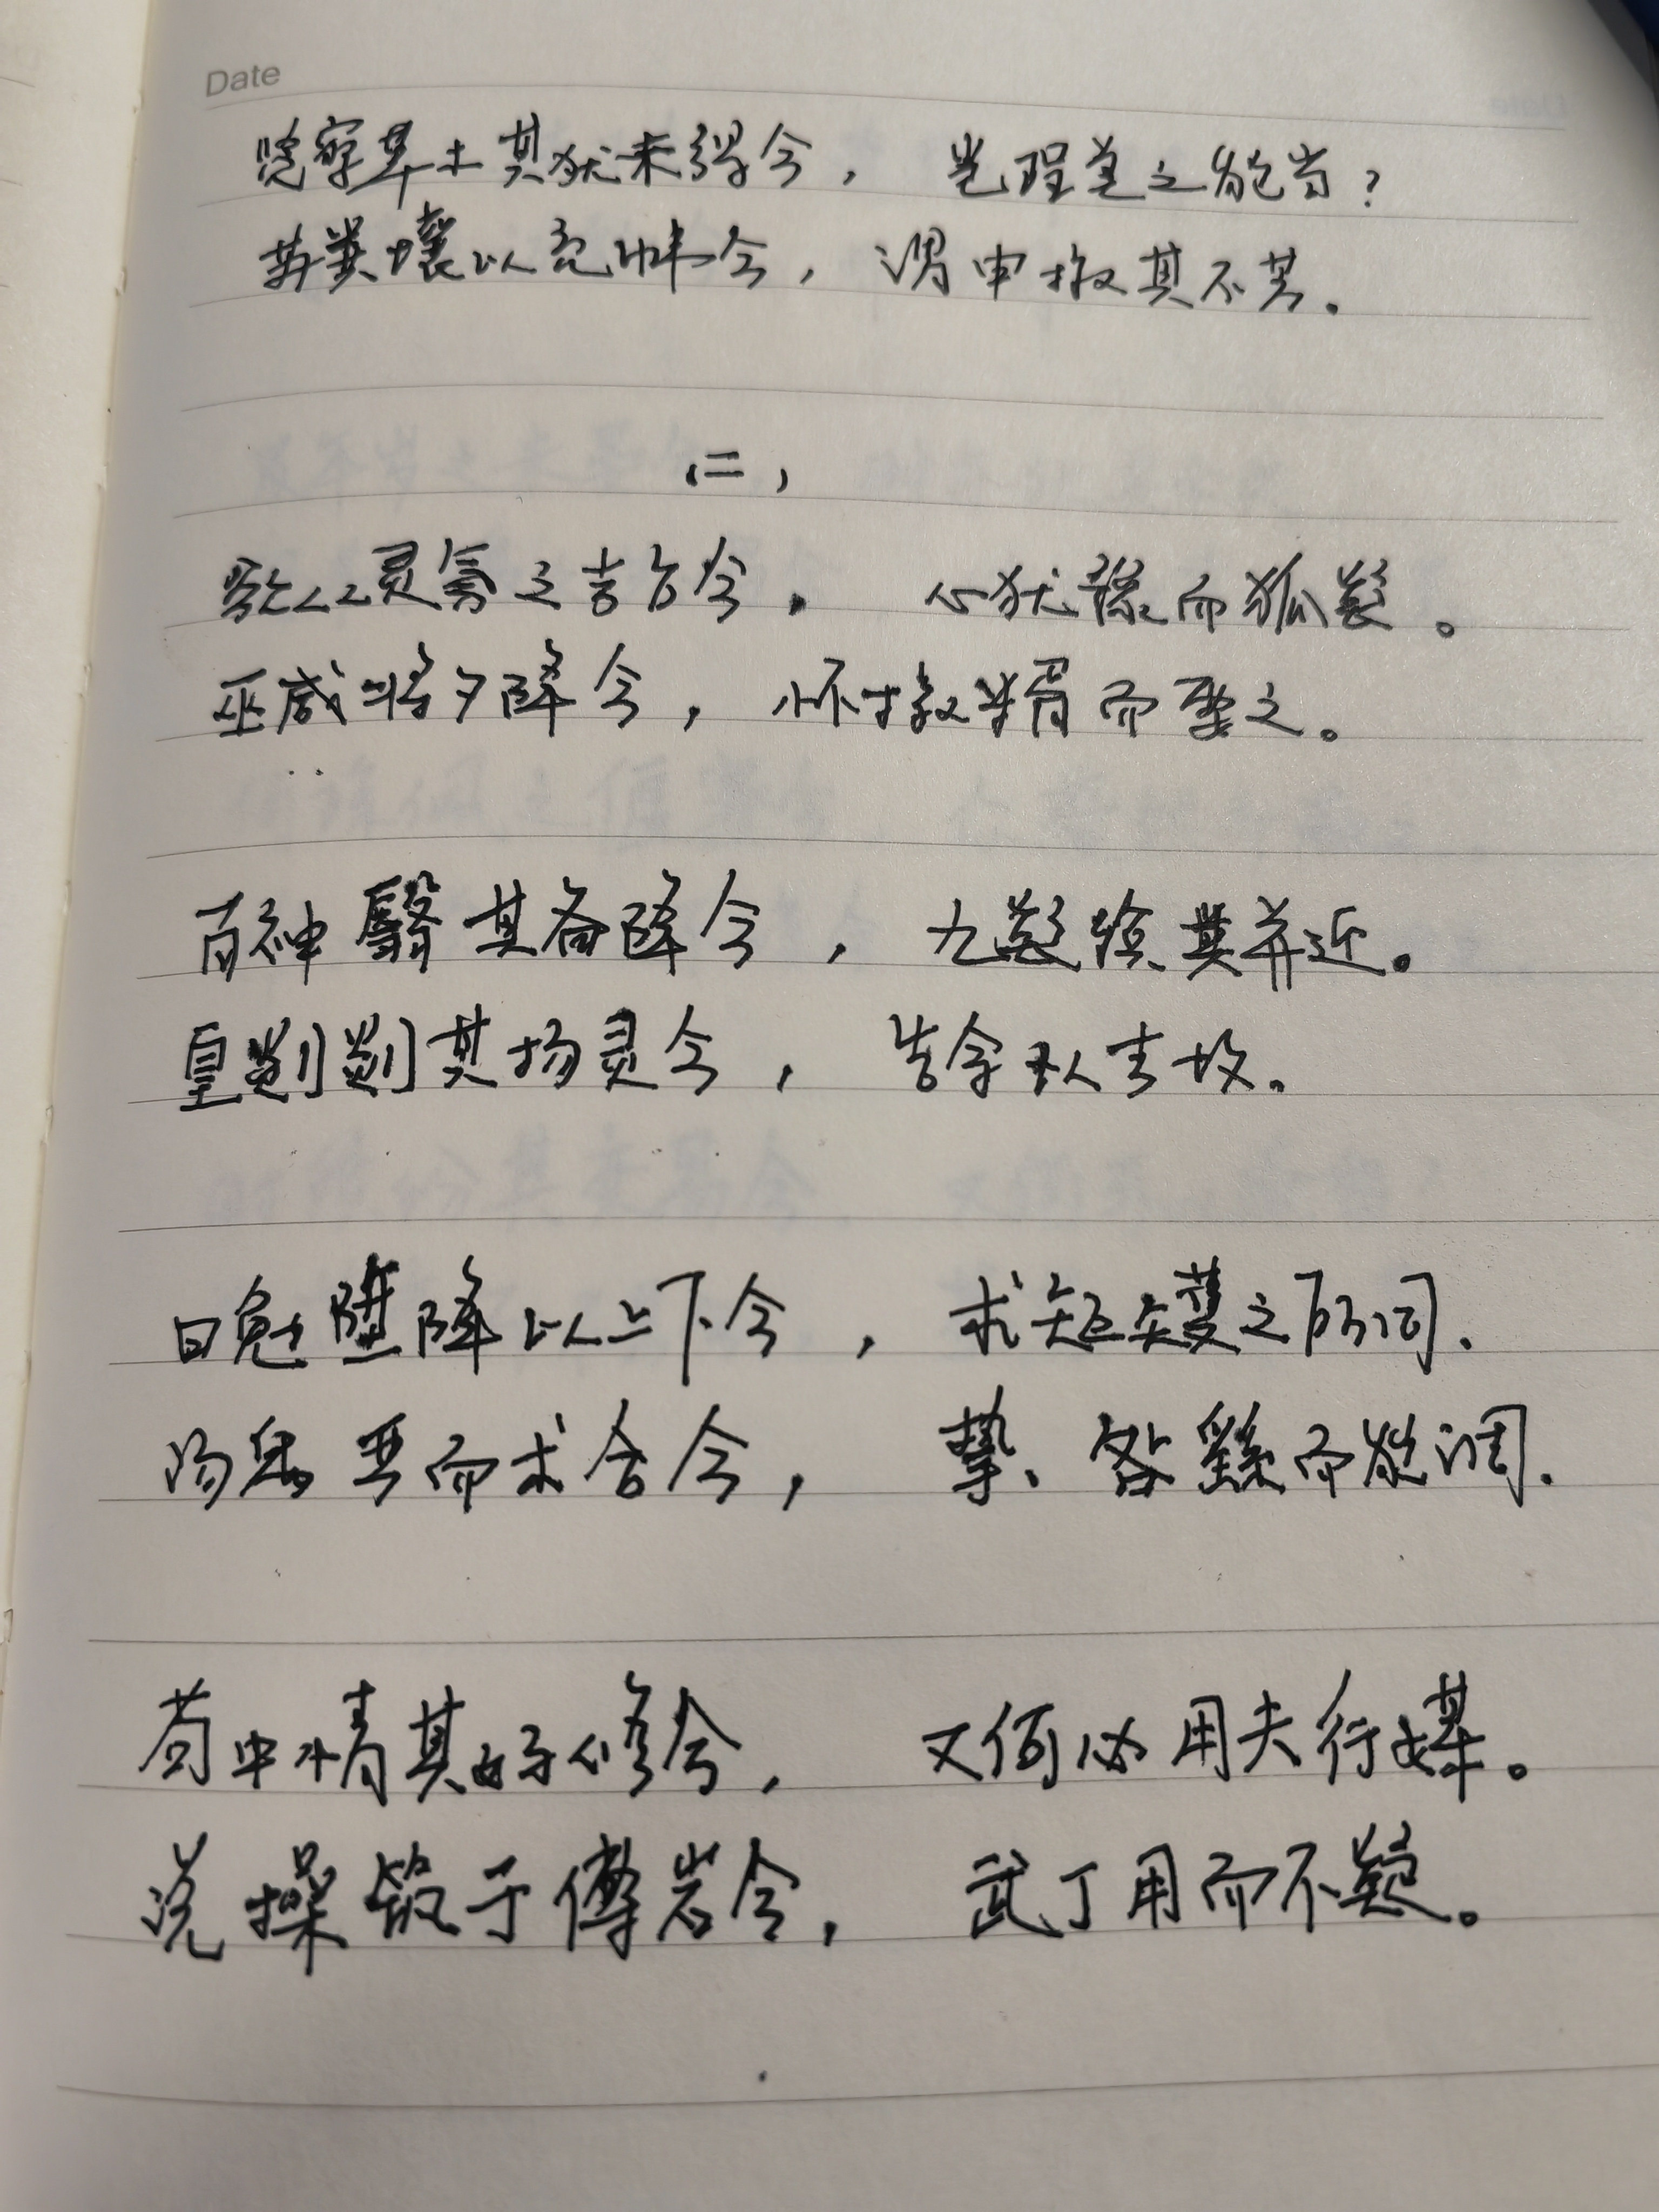 Date
览察草木其犹未得兮，岂珵美之能当？
苏粪壤以充帏兮，谓申椒其不芳。
（二）
欲从灵氛之吉占兮，心犹豫而狐疑。
巫咸将夕降兮，怀椒糈而要之。
百神翳其备降兮，九疑缤其并迎。
皇剡剡其扬灵兮，告余以吉故。
曰勉陞降以上下兮，求矩矱之所同.
汤禹严而求合兮，挚、咎繇而能调.
苟中情其好修兮，又何必用夫行媒。
说操筑于傅岩兮，武丁用而不疑。